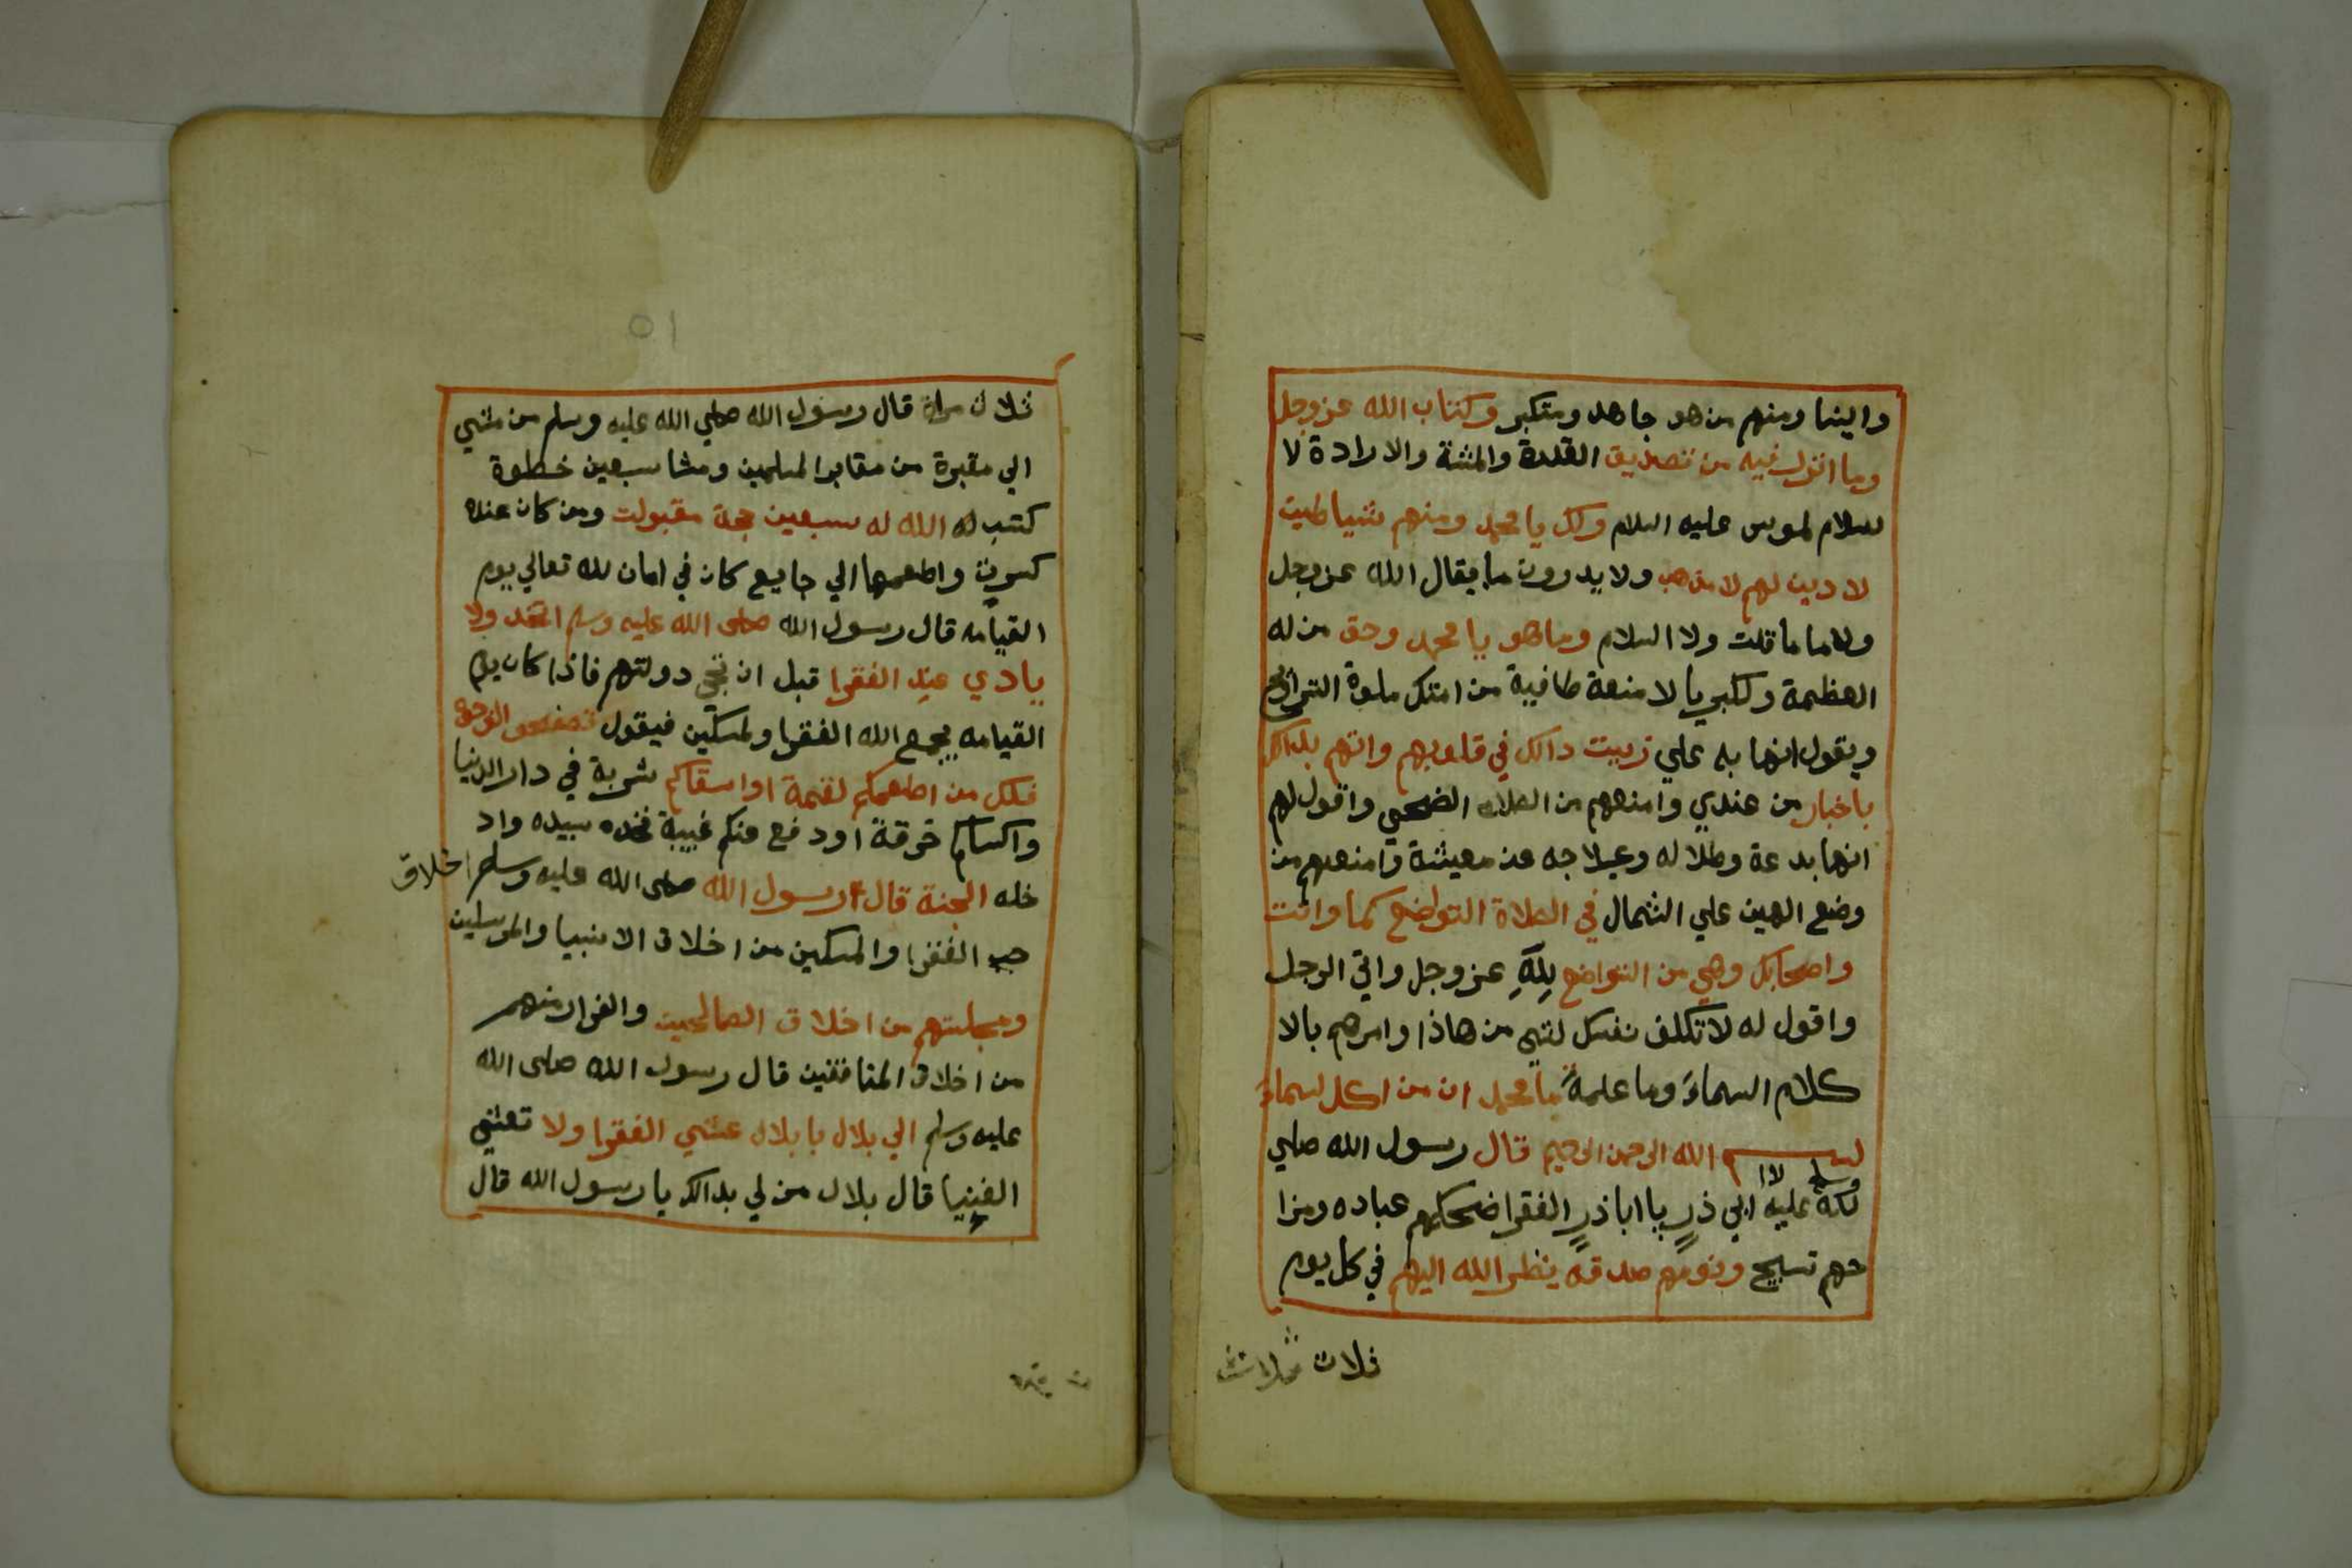 وايضا ومنهم من هو جاهد ومتكبر وكتاب الله عزوجل
وما انزل فيه من تصديق القدرة والمشة والارادة لا
سلام لموس عليه السلام وكل يا محمد ومنهم شياطين
لا دين لهم لا مذهب ولا يدرون ما يقال الله عزوجل
ولا ما ما قلت ولا السلام وما هو يا محمد وحق من له
العظمة ولكبريا لا منعة طافية من امتك صلوة التراويح
ويقول انها بد علي زينت دالك في قلوبهم واتهم بذالك
باخبار من عندي وامنعهم من الصلاه الضحي واقول لهم
انها بدعة وظلاله وعلاجه عن معيشة وامنعهم من
وضع اليمين علي الشمال في الصلاة التواضع كما وانت
واصحابك وهي من التواضع لله عزوجل واتي الرجل
واقول له لا تكلف نفسك لشي من هاذا وامرهم بالا
كلام السماء وما علمة يا محمد ان من اكل السماء
بسم الله الرحمن الرحيم قال رسول الله صلي
لله عليه وسلم لاا ابي ذر يا اباذر الفقرا ضحكهم عباده ومزا
حهم تسبيح ونومهم صدقه ينظر الله اليهم في كل يوم
ثلاث
ثلاث مراة قال رسول الله صلي الله عليه وسلم من مشي
الي مقبرة من مقابر المسلمين ومشا سبعين خطوة
كتب له الله له سبعين حجة مقبولت ومن كان عنده
كسوت واطعمها الي جايع كان في امان لله تعالي يوم
القيامه قال رسول الله صلى الله عليه وسلم اتخد ولا
يادي عند الفقرا قبل ان تجي دولتهم فاذا كان يوم
القيامه يجمع الله الفقرا ولمسكين فيقول تصفحو الوجوه
فكل من اطعمكم لقمة او اسقاكم شربة في دار الدنيا
واكساكم خرقة او دفع عنكم غيبة فخده بيده واد
خله الجنة قال رسول الله صلى الله عليه وسلم اخلاق
حب الفقرا والمسكين من اخلاق الانبيا والمرسلين
ومجلستهم من اخلاق الصالحين والفرار منهم
من اخلاق المنافقين قال رسول الله صلى الله
عليه وسلم الي بلال يا بلال عشي الفقرا ولا تعشي
الغنيا قال بلال من لي بدالك يا رسول الله قال